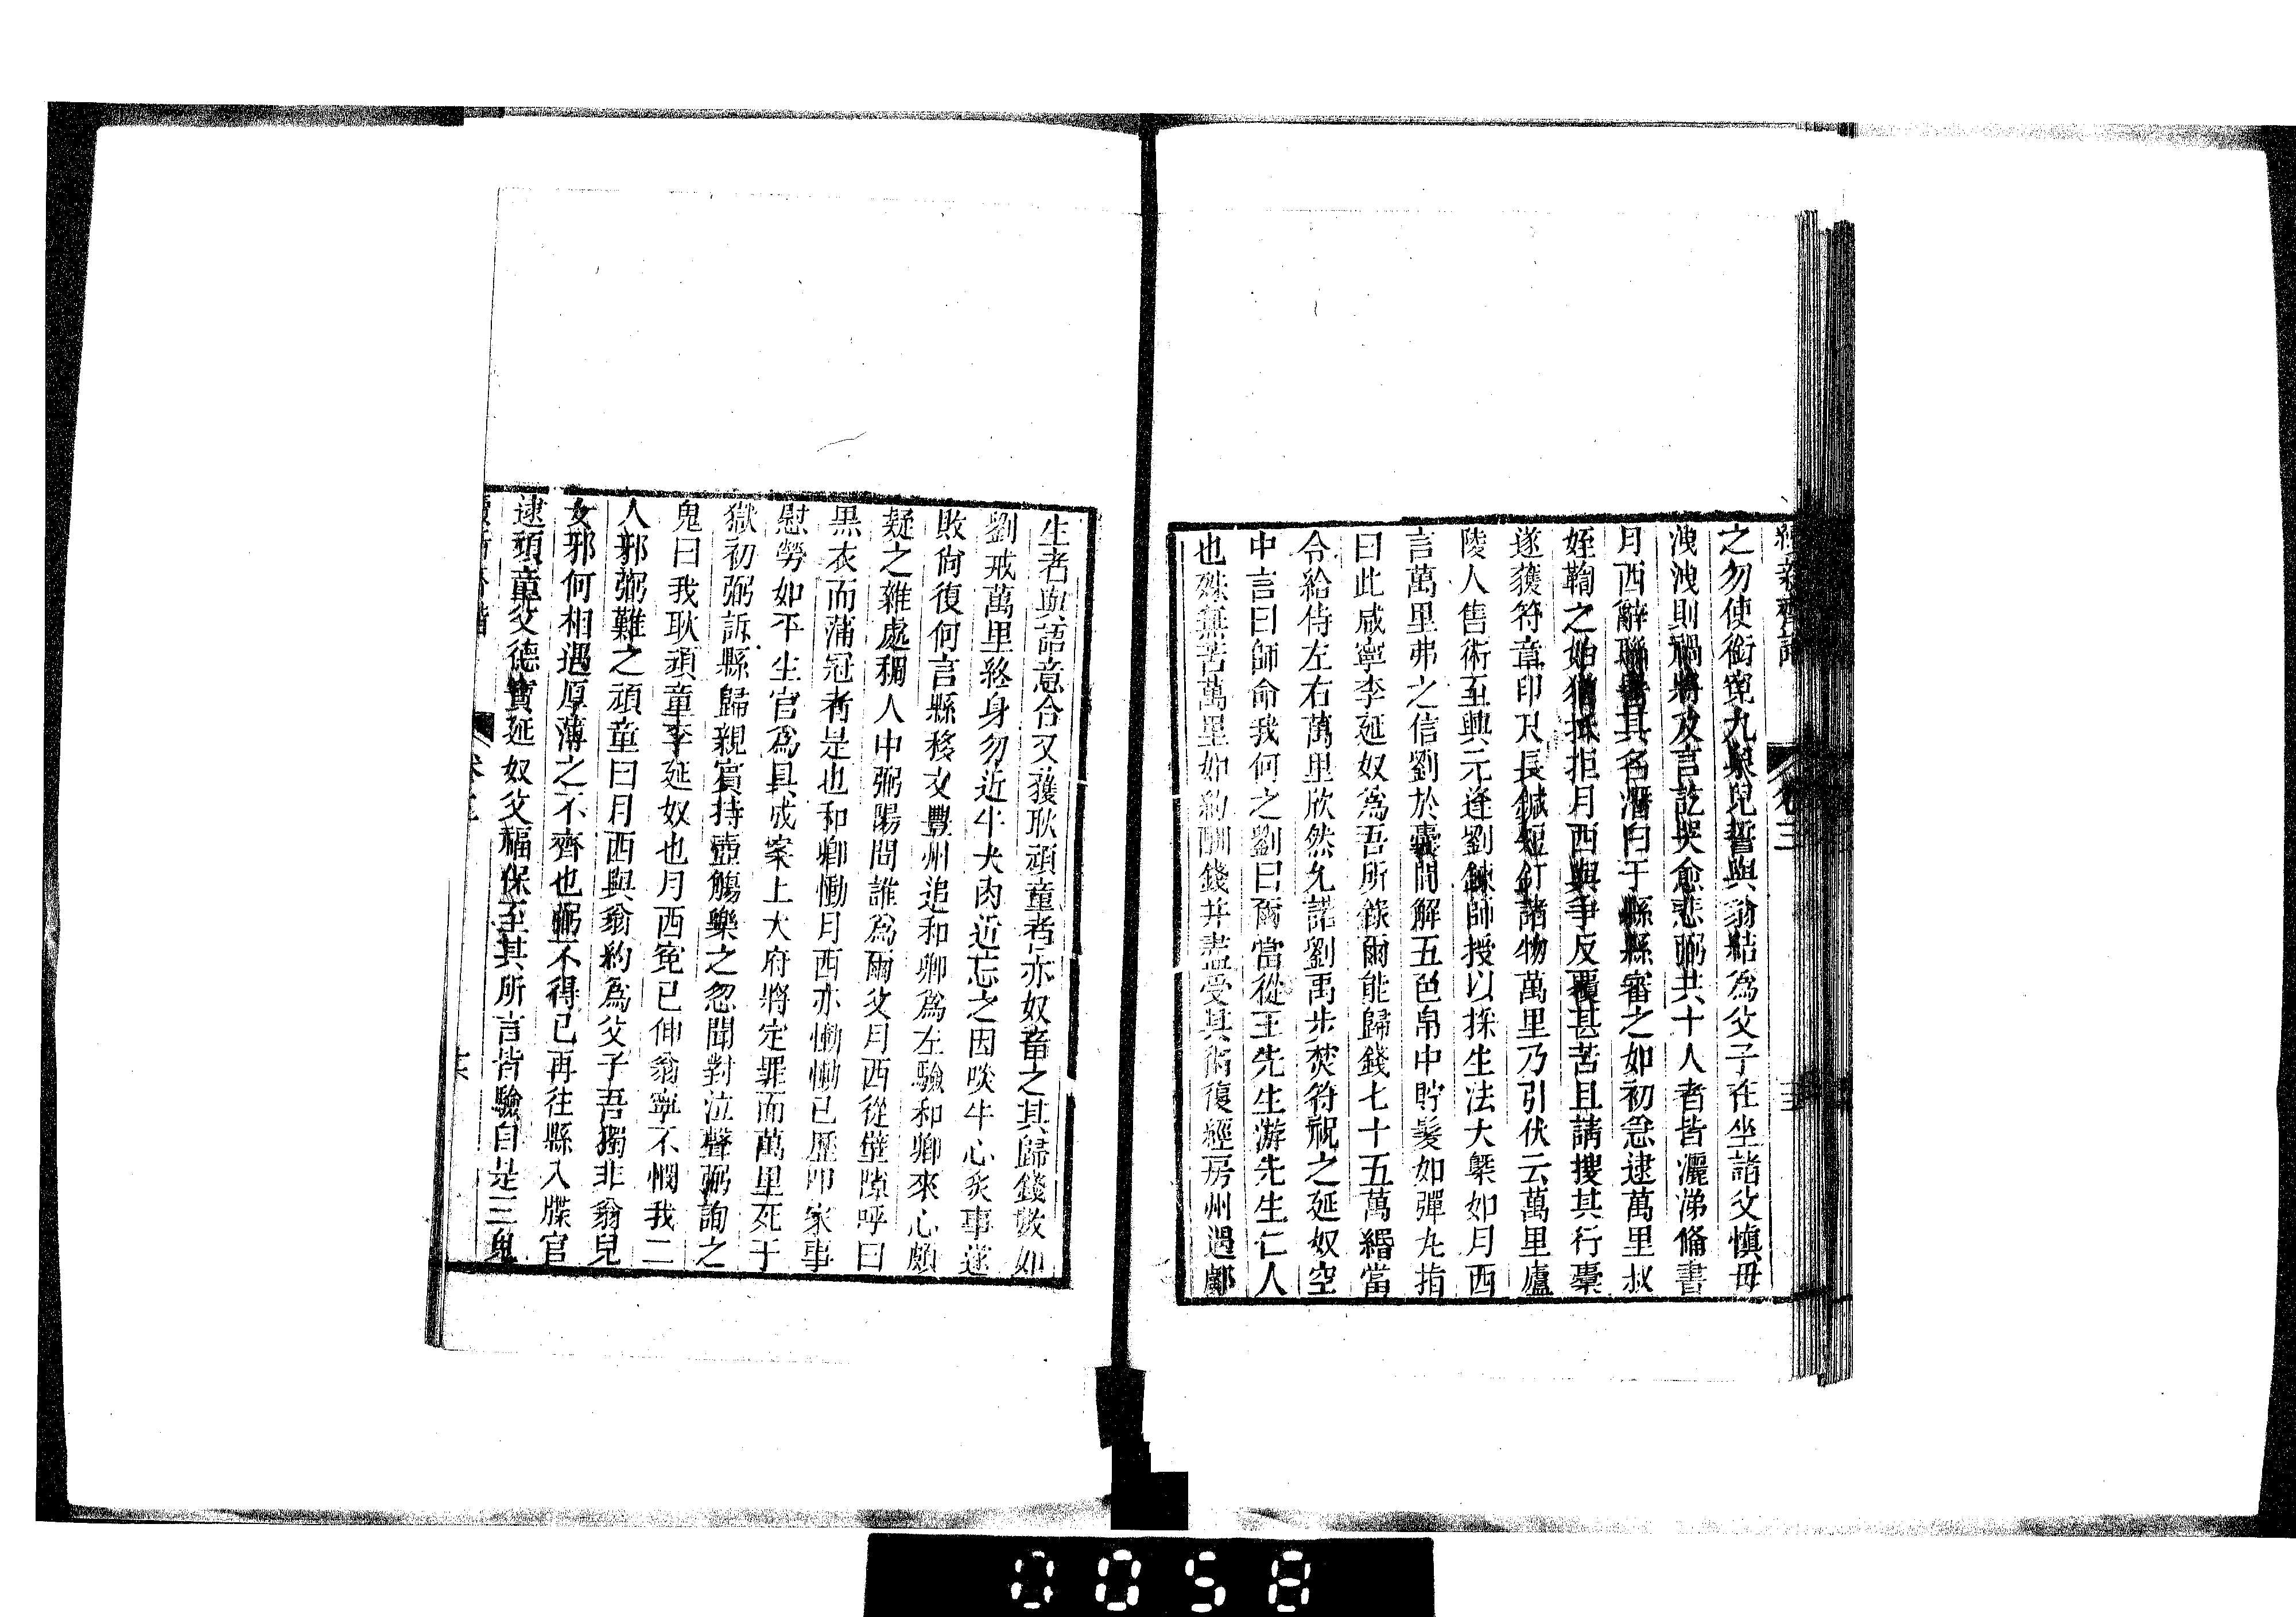 之勿使銜寃九泉兒誓與翁結爲父子在坐諸父慎毋
洩洩則禍將及言訖哭愈悲弼共十人者皆灑涕備書
月西辭聯署其名潛白于縣縣審之如初急逮萬里叔
姪鞫之始猶抵拒月西與爭反覆甚苦且請搜其行橐
遂獲符章印尺長鍼短釘諸物萬里乃引伏云萬里廬
陵人售術至興元逢劉鍊師授以採生法大槩如月西
言萬里弗之信劉於囊間解五色帛中貯髮如彈丸指
曰此咸寧李延奴爲吾所錄爾能歸錢七十五萬緡當
令給侍左右萬里欣然允諾劉禹步焚符祝之延奴空
中言曰師命我何之劉曰爾當從王先生游先生仁人
也殊無苦萬里如約酬錢并盡受其術復經房州遇鄺
生者與語意合又獲耿頑童者亦奴畜之其歸錢數如
劉戒萬里終身勿近牛犬肉近忘之因啖牛心炙事遂
敗尙復何言縣移文豐州追和卿爲左驗和卿來心頗
疑之雜處稠人中弼陽問誰爲爾父月西從壁隙呼曰
黑衣而蒲冠者是也和卿慟月西亦慟慟已歷叩家事
慰勞如平生官爲具成案上大府將定罪而萬里死于
獄初弼訴縣歸親賓持壺觴樂之忽聞對泣聲弼詢之
鬼曰我耿頑童李延奴也月西寃已伸翁寧不憫我二
人邪弼難之頑童曰月西與翁約爲父子吾獨非翁兒
女邪何相遇厚薄之不齊也弼不得已再往縣入牒官
逮頑童父德寶延奴父福保至其所言皆驗自是三鬼